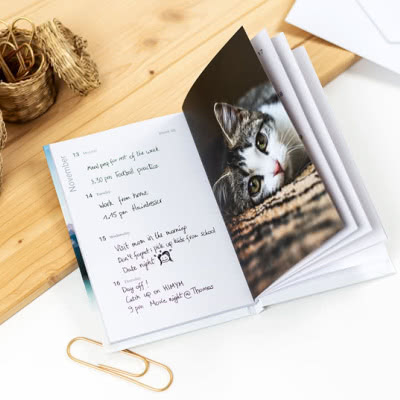 November
13 Monday
Meal prep for rest of the week
5.30 pm Football practice
14 Tuesday
Work from home
1.15 pm Hairdresser
15 Wednesday
Visit mom in the morning
Don't forget: pick up kids from school
Date night
16 Thursday
Day off!
Catch up on HIMYM
9 pm Movie night @ Thomas